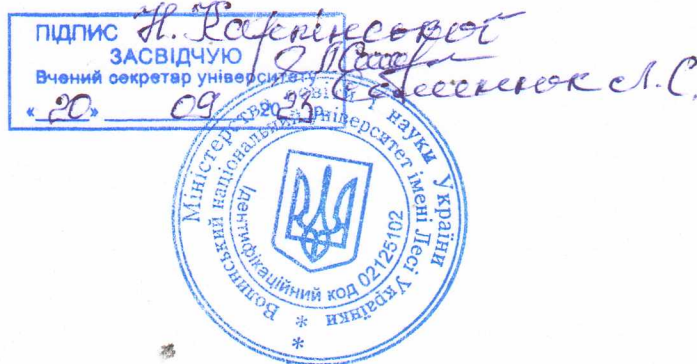 ПІДПИС Н. Карпінської
ЗАСВІДЧУЮ
Вчений секретар університету
«20» 09 2023 р.
Міністерство освіти і науки України
Волинський національний університет імені Лесі Українки
Ідентифікаційний код 02125102